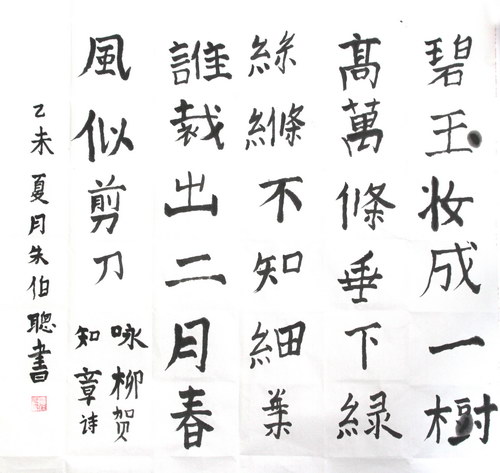 碧玉妆成一樹
髙萬條垂下緑
絲縧不知細葉
誰裁出二月春
風似剪刀
咏柳贺
知章诗
乙未夏月朱伯聰書